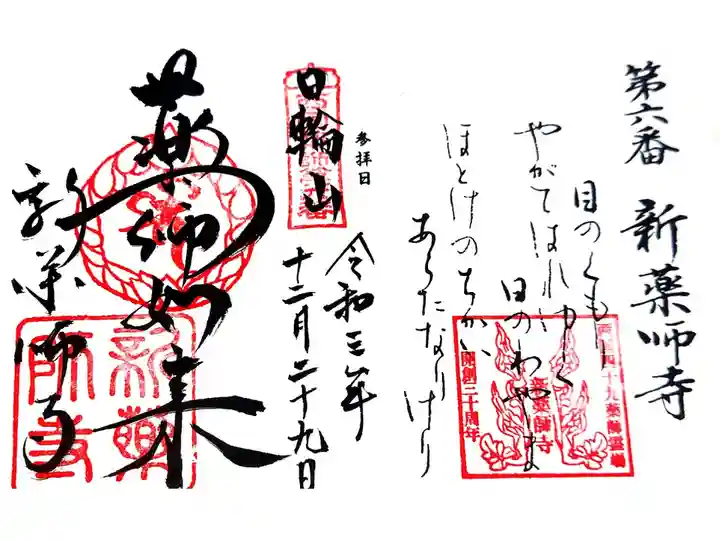 第六番 新薬師寺
目のくもり
やがてはれゆく
日のわやま
ほとけのちかい
あらたなりけり
西国四十九薬師霊場
新薬師寺
開創三十周年
参拝日
日輪山
令和三年
十二月二十九日
薬師如来
新薬師寺
新薬師寺